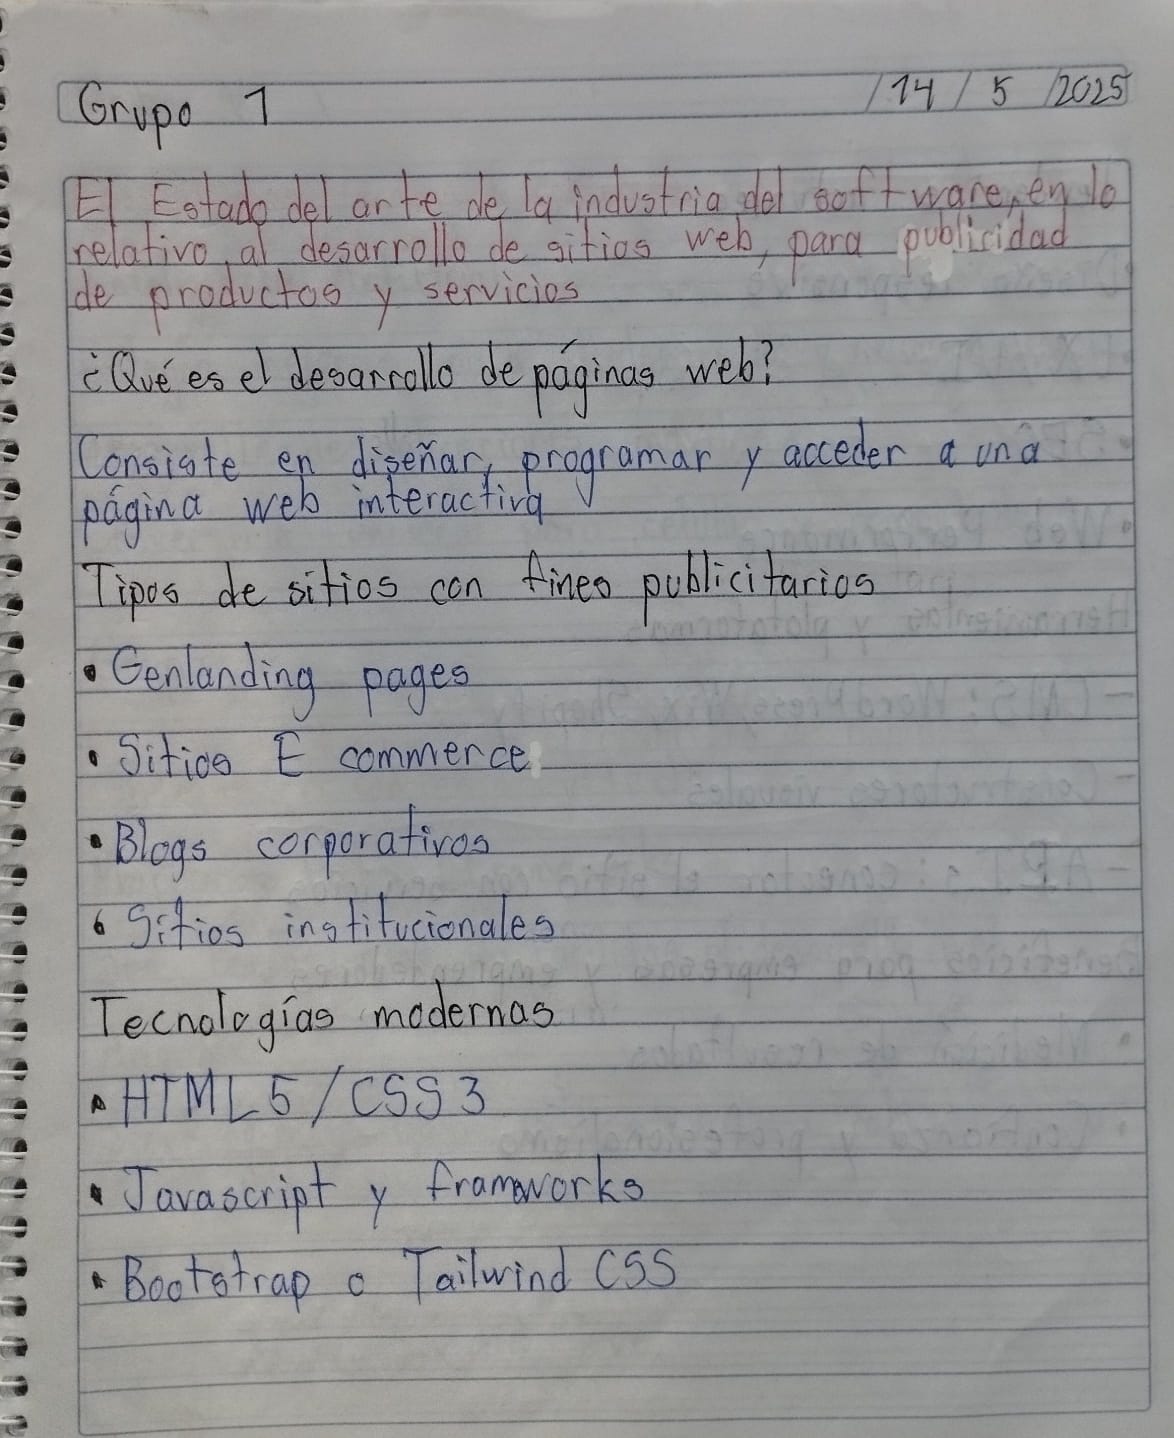 Grupo 1 /14/5/2025
El Estado del arte de la industria del software, en lo
relativo, al desarrollo de sitios web, para publicidad
de productos y servicios
¿Qué es el desarrollo de páginas web?
Consiste en diseñar, programar y acceder a una
página web interactiva
Tipos de sitios con fines publicitarios
• Genlanding pages
• Sitios E commerce
• Blogs corporativos
• Sitios institucionales
Tecnologías modernas
• HTML5/CSS3
• Javascript y frameworks
• Bootstrap o Tailwind CSS